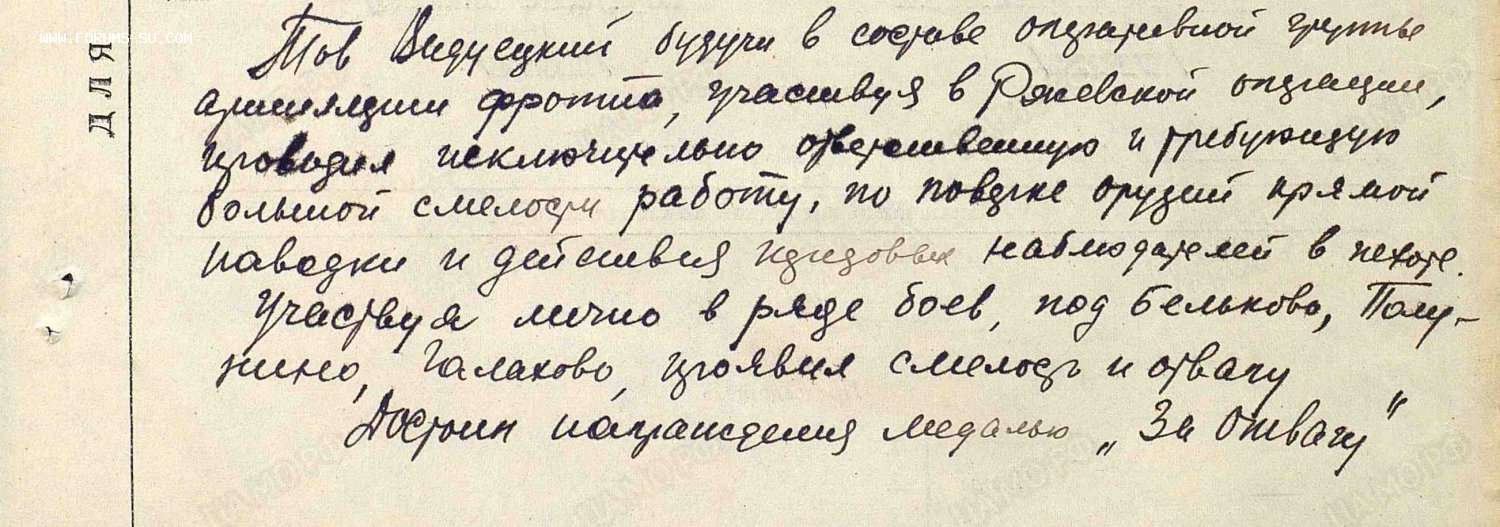 WWW.FORUMS-SU.COM
ДЛЯ
Тов Видусецкий будучи в составе оперативной группы
артиллерии фронта, участвуя в Ржевской операции,
проводил исключительно ответственную и требующую
большой смелости работу, по поверке орудий прямой
наводки и действия передовых наблюдателей в пехоте.
Участвуя лично в ряде боев, под Бельково, Полу-
нино, Галахово, проявил смелость и отвагу
Достоин награждения медалью „За Отвагу"